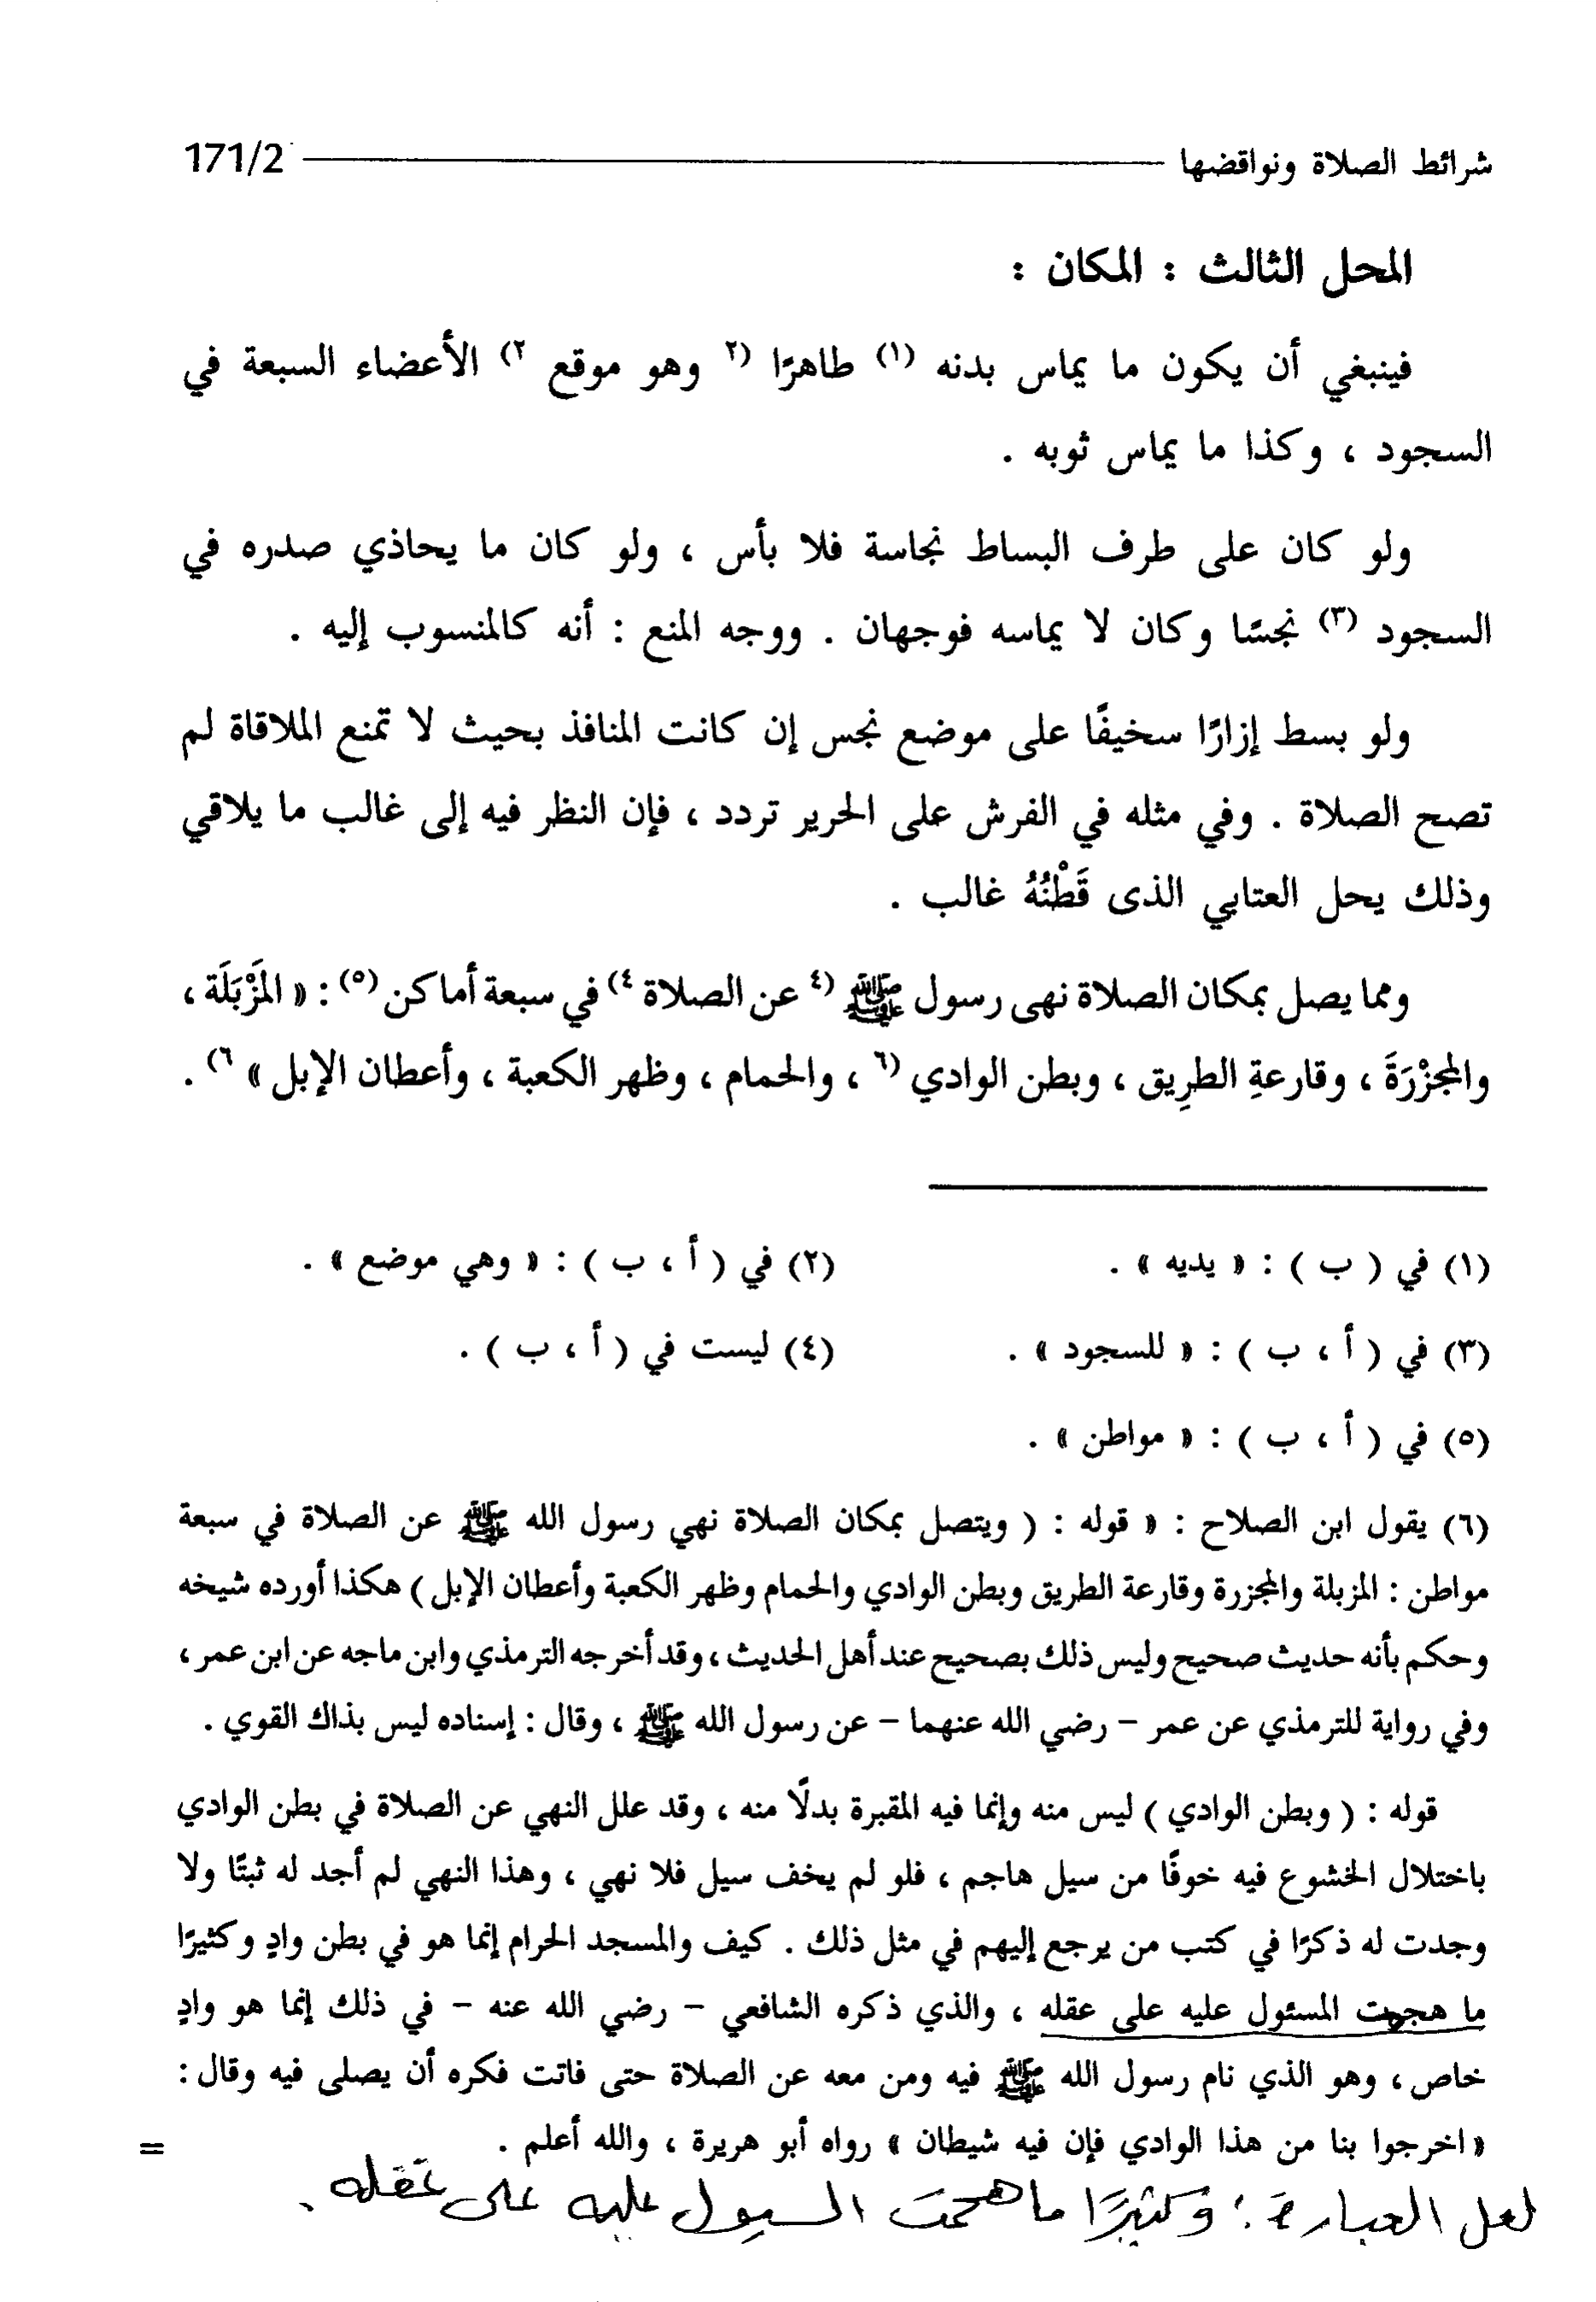 شرائط الصلاة ونواقضها 171/2
المحل الثالث : المكان :
فينبغي أن يكون ما يماس بدنه (١) طاهرًا (٢ وهو موقع ٢) الأعضاء السبعة في
السجود ، وكذا ما يماس ثوبه .
ولو كان على طرف البساط نجاسة فلا بأس ، ولو كان ما يحاذي صدره في
السجود (٣) نجسًا وكان لا يماسه فوجهان . ووجه المنع : أنه كالمنسوب إليه .
ولو بسط إزارًا سخيفًا على موضع نجس إن كانت المنافذ بحيث لا تمنع الملاقاة لم
تصح الصلاة . وفي مثله في الفرش على الحرير تردد ، فإن النظر فيه إلى غالب ما يلاقي
وذلك يحل العتابي الذى قَطْنُهُ غالب .
ومما يصل بمكان الصلاة نهى رسول ﷺ (٤ عن الصلاة ٤) في سبعة أماكن (٥) : « المَزْبَلَة ،
والمجزْرَةَ ، وقارعةِ الطرِيق ، وبطن الوادي (٦ ، والحمام ، وظهر الكعبة ، وأعطان الإبل » ٦) .
(١) في ( ب ) : « يديه » . (٢) في ( أ ، ب ) : « وهي موضع » .
(٣) في ( أ ، ب ) : « للسجود » . (٤) ليست في ( أ ، ب ) .
(٥) في ( أ ، ب ) : « مواطن » .
(٦) يقول ابن الصلاح : « قوله : ( ويتصل بمكان الصلاة نهي رسول الله ﷺ عن الصلاة في سبعة
مواطن : المزبلة والمجزرة وقارعة الطريق وبطن الوادي والحمام وظهر الكعبة وأعطان الإبل ) هكذا أورده شيخه
وحكم بأنه حديث صحيح وليس ذلك بصحيح عند أهل الحديث ، وقد أخرجه الترمذي وابن ماجه عن ابن عمر ،
وفي رواية للترمذي عن عمر - رضي الله عنهما - عن رسول الله ﷺ ، وقال : إسناده ليس بذاك القوي .
قوله : ( وبطن الوادي ) ليس منه وإنما فيه المقبرة بدلًا منه ، وقد علل النهي عن الصلاة في بطن الوادي
باختلال الخشوع فيه خوفًا من سيل هاجم ، فلو لم يخف سيل فلا نهي ، وهذا النهي لم أجد له ثبتًا ولا
وجدت له ذكرًا في كتب من يرجع إليهم في مثل ذلك . كيف والمسجد الحرام إنما هو في بطن وادٍ وكثيرًا
ما هجمت المسئول عليه على عقله ، والذي ذكره الشافعي - رضي الله عنه - في ذلك إنما هو وادٍ
خاص ، وهو الذي نام رسول الله ﷺ فيه ومن معه عن الصلاة حتى فاتت فكره أن يصلى فيه وقال :
« اخرجوا بنا من هذا الوادي فإن فيه شيطان » رواه أبو هريرة ، والله أعلم . =
لعل العبارة : وكثيرًا ما هجمت السيول عليه على غفله .